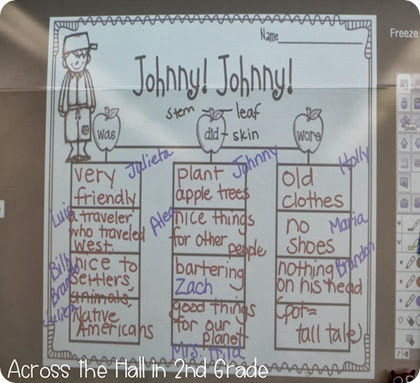 Name
Freeze
Johnny! Johnny!
stem
leaf
skin
was
did
wore
Julieta
Johnny
Holly
very
friendly
plant
apple trees
old
clothes
Luis
a traveler
who traveled
west
Alex
nice things
for other
people
no
shoes
Maria
Billy
Brandon
nice to
settlers,
animals,
Native
Americans
bartering
Zach
good things
for our
planet
nothing
on his head
Brandon
(pot=
tall tale)
Across the Hall in 2nd Grade